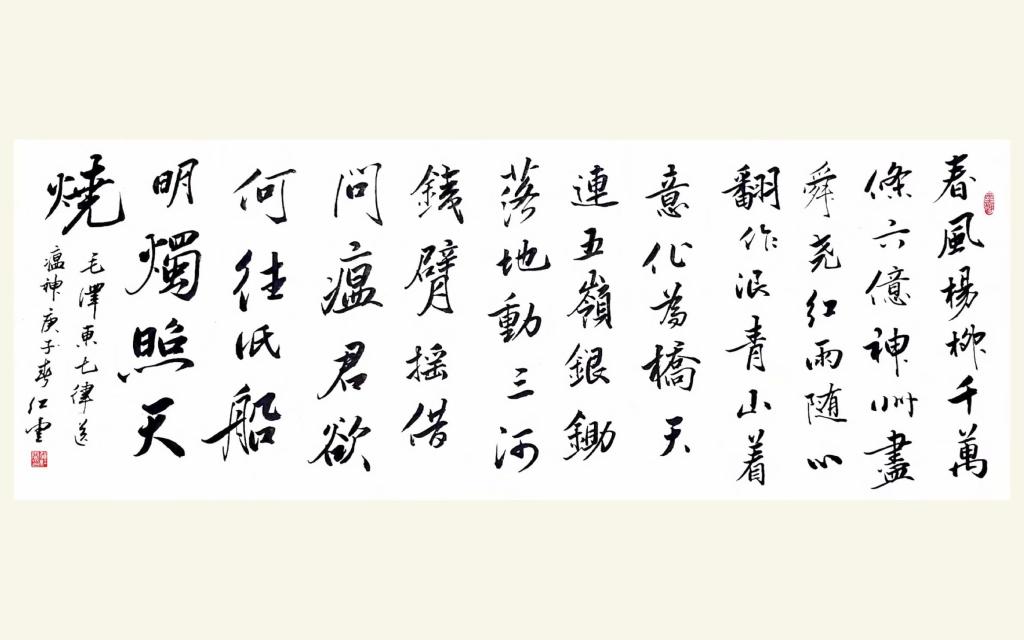 春風楊柳千萬
條六億神州盡
舜尧红雨随心
翻作浪青山着
意化為橋天
連五嶺銀鋤
落地動三河
鐵臂摇借
問瘟君欲
何往纸船
明燭照天
燒
毛澤東七律送
瘟神庚子春仁雲